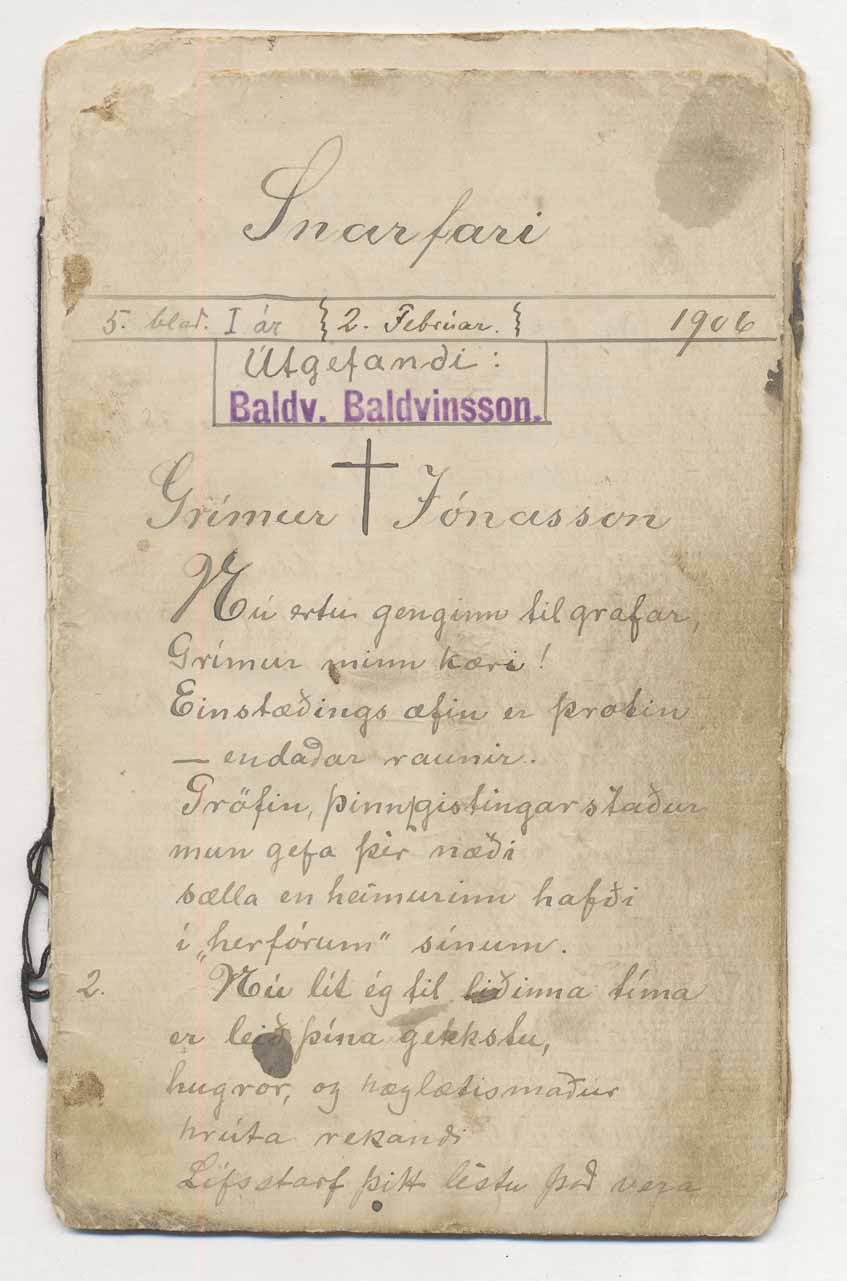 Snarfari
5. blað. I ár {2. Febrúar.} 1906
Útgefandi:
Baldv. Baldvinsson.
Grímur † Jónasson
Nú ertu genginn til grafar,
Grímur minn kæri!
Einstæðings æfin er þrotin
— endaðar raunir.
Gröfin, þinn gistingarstaður
mun gefa þér næði
sælla en heimurinn hafði
í „herförum" sínum.
2. Nú lít ég til liðinna tíma
er leið þína gekkstu,
hugrór, og hæglætismaður
hrúta rekandi
Lífsstarf þitt léstu það vera